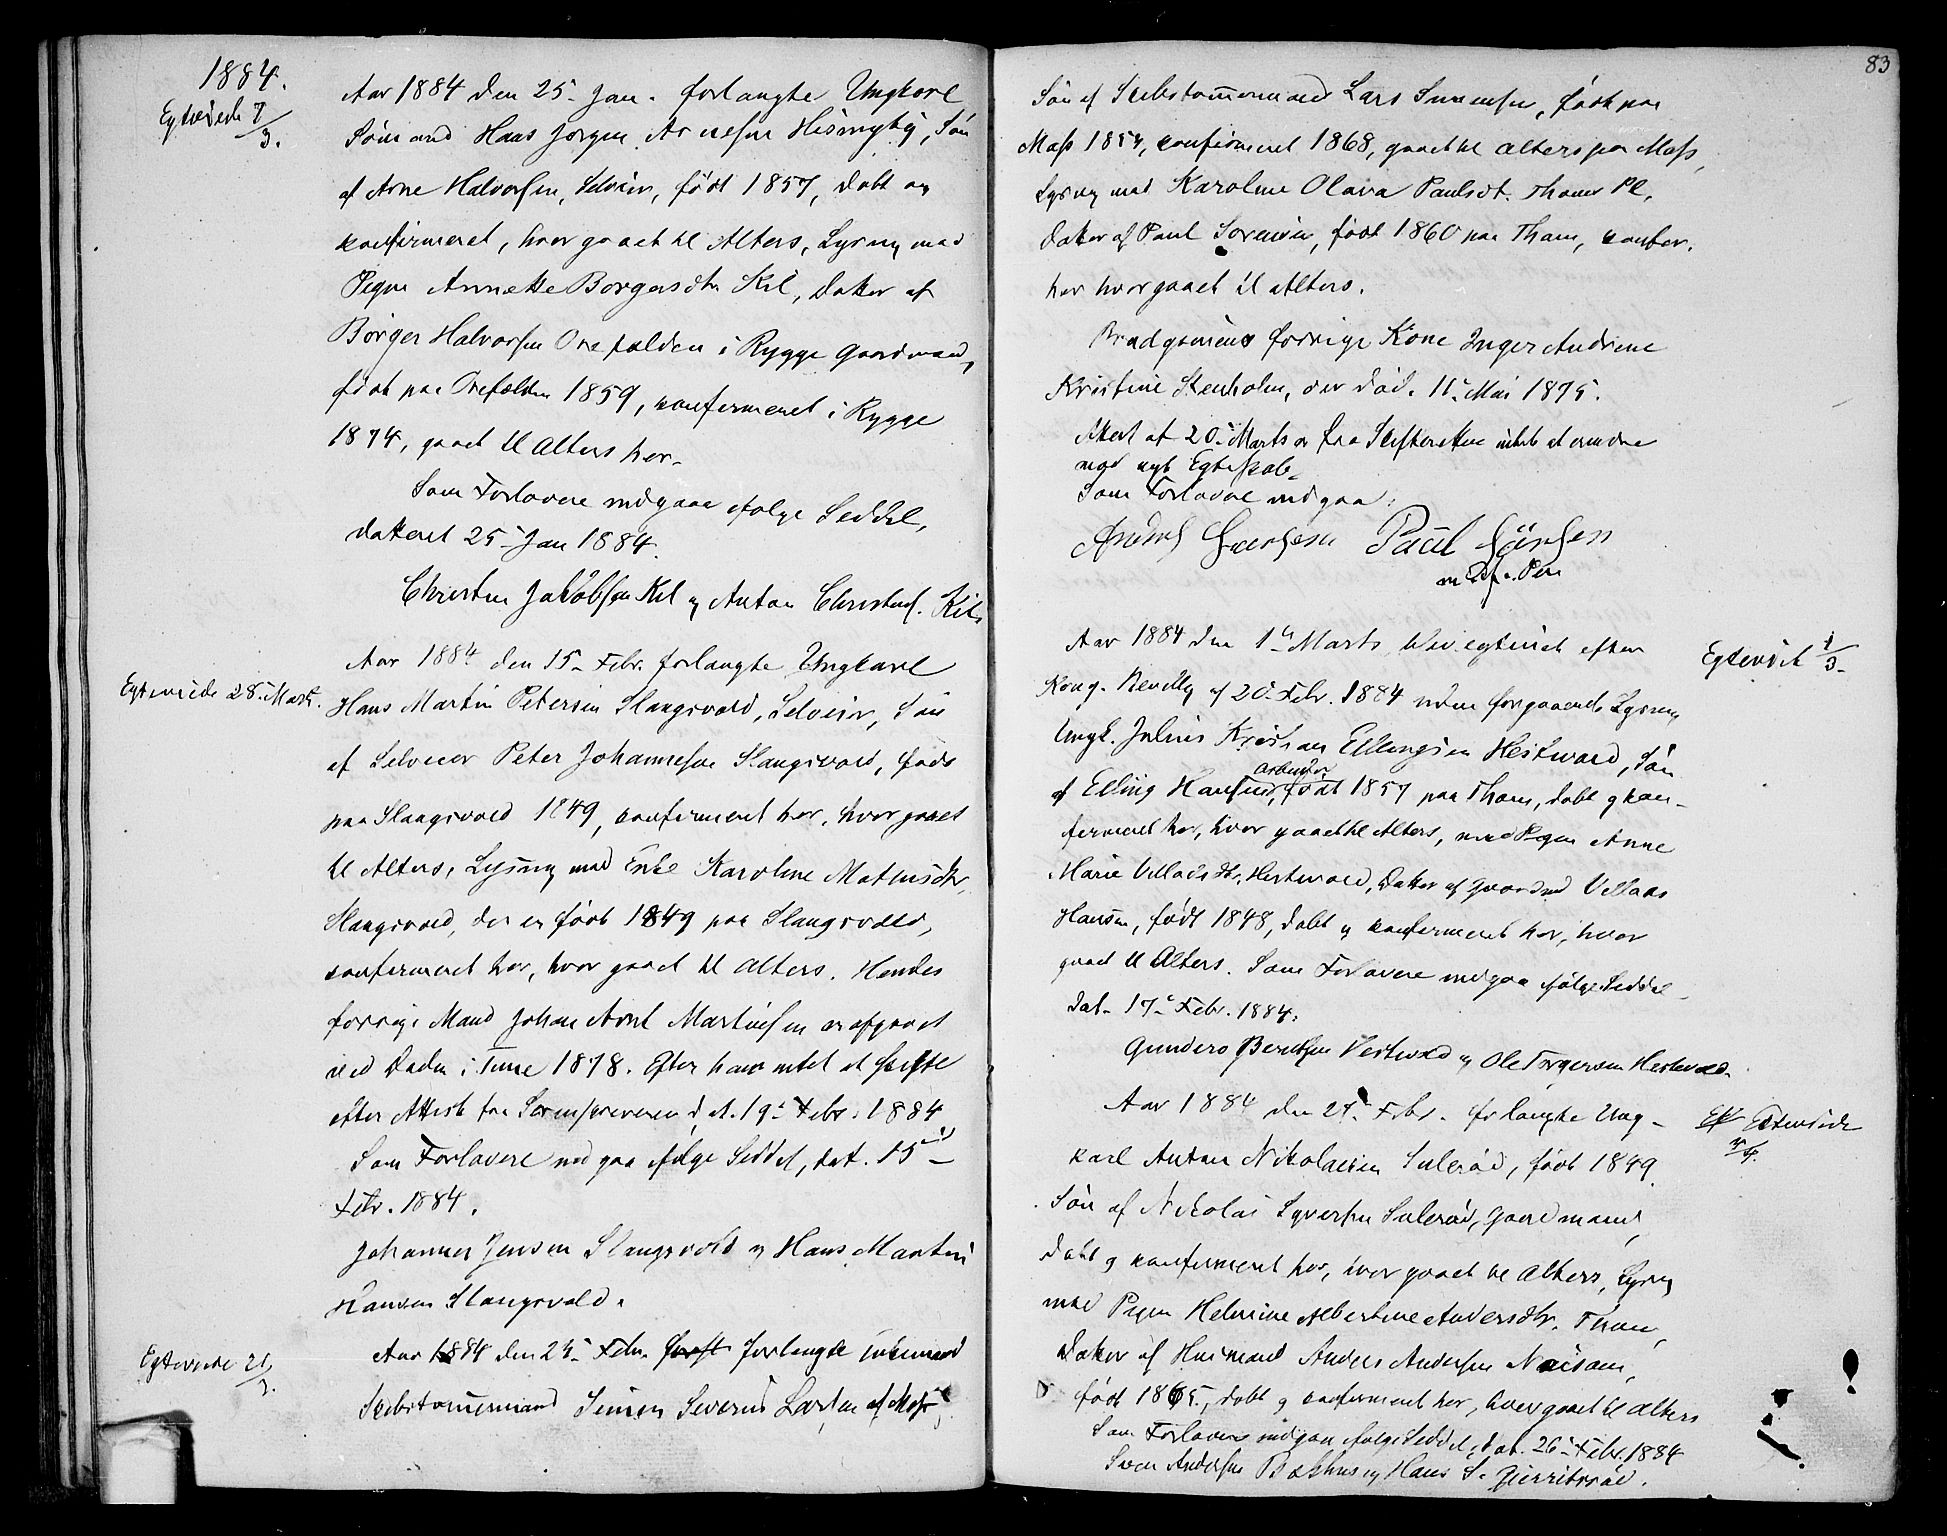 1884.
Egteviede 7/3.
Aar 1884 den 25. Jan. forlangte Ungkarl
Sømand Hans Jørgen Arnesen, Søn
af Arne Halvorsen, Selveier, født 1857, døbt og
konfirmeret, hvor gaaet til Alters, Lysning med
Pigen Annette Borgersdtr. Kil, Datter af
Børger Halvorsen Orefalden i Rygge Gaardmand,
født paa Orefalden 1859, confirmeret i Rygge
1874, gaaet til Alters her.
Som Forlovere indgaae ifølge Seddel,
dateret 25 Jan 1884.
Christen Jakobsen Kil og Anton Christens. Kil.
Egteviede 28. Marts.
Aar 1884 den 15. Febr. forlangte Ungkarl
Hans Martin Petersen Slangsvold, Selveier, Søn
af Selveier Peter Johannesen Slangsvold, født
paa Slangsvold 1849, confirmeret her, hvor gaaet
til Alters, Lysning med Enke Karoline Mathisdtr.
Slangsvold, der er født 1849 paa Slangsvold,
confirmeret her, hvor gaaet til Alters. Hendes
forrige Mand Johan Arnt Martinsen er afgaaet
ved Døden i Tune 1878. Efter ham intet at skifte
efter Attest fra Sorenskriveren d. d. 19. Febr. 1884
Som Forlovere indgaa ifølge Seddel, dat. 15
Febr. 1884.
Johannes Jensen Slangsvold og Hans Martin
Hansen Slangsvold.
Egteviede 21/3.
Aar 1884 den 23. Febr. forlangte Enkemand
Skibstømmermand Simen Severin Larsen af Moss,
83
Søn af Skibstømmermand Lars Simensen, født paa
Moss 1854, confirmeret 1868, gaaet til Alters paa Moss,
Lysning med Karoline Olava Paulsdt. Thom Pl.
Datter af Paul Sørensen, født 1860 paa Thom, confir.
her hvor gaaet til Alters.
Brudgommens forrige Kone Inger Andrine
Kristine Stenholm, der død. 11. Mai 1875.
Attest af 20. Marts fra Skifteretten intet at erindre
mod nyt Egteskab.
Som Forlovere indgaa:
Paul Sørensen
m. P. Pen
Egteviet 1/3.
Aar 1884 den 1. Marts blev egteviet efter
Kong. Bevilling af 20. Febr. 1884 uden forgaaende Lysning
Ungk. Julius Kristian Ellingsen Hestevold, Søn
af Elling Hansen, Arbeider, født 1857 paa Thom, døbt og kon-
firmeret her, hvor gaaet til Alters, med Pigen Anne
Marie Villadsdtr. Hestevold, Datter af Gaardmd Villads
Hansen, født 1848, døbt og confirmeret her, hvor
gaaet til Alters. Som Forlovere indgaa ifølge Seddel
dat. 17. Febr. 1884.
Gunders Berntsen Hestevold og Ole Torgersen Hestevold.
Egteviede /4.
Aar 1884 den 27. Febr. forlangte Ung-
karl Anton Nikolaisen Sulerød, født 1849
Søn af Nikolai Syversen Sulerød, Gaardmand,
døbt og confirmeret her, hvor gaaet til Alters, Lysning
med Pigen Helmine Albertine Andersdtr. Thom,
Datter af Husmand Anders Andersen,
født 1865, døbt og confirmeret her, hvor gaaet til Alters
Som Forlovere indgaa ifølge Seddel, dat. 26. Febr. 1884
Sven Andersen Bakhus og Hans S. Gjerritsrød.